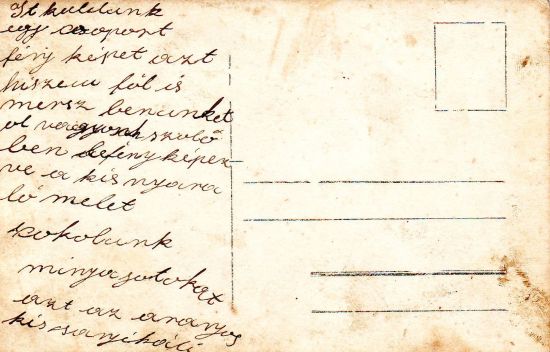 It küldünk
egy csoport
fénj képet azt
hiszem föl is
mersz benünket
ot vagyonk szőlő
ben lefényképez
ve a kis nyara
ló melet
csokolunk
minyajotokat
azt az aranyos
kis